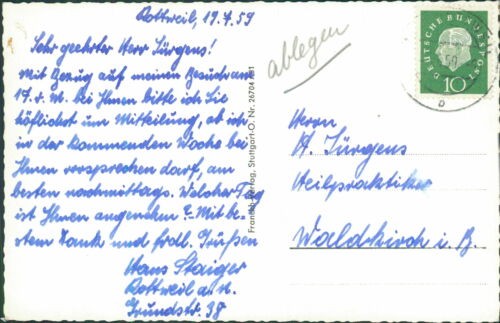 Rottweil, 19.7.59
Sehr geehrter Herr Jürgens!
Mit Bezug auf meinen Besuch am
17. d. M. bei Ihnen bitte ich Sie
höflichst um Mitteilung, ob ich
in der kommenden Woche bei
Ihnen vorsprechen darf, am
besten nachmittags. Welcher Tag
ist Ihnen angenehm? Mit be-
stem Dank und frdl. Grüßen
Hans Staiger
Rottweil a. N.
Grundstr. 38
ablegen
Franckh-Verlag, Stuttgart-O. Nr. 26704
DEUTSCHE BUNDESPOST
10
b
Herrn
A. Jürgens
Heilpraktiker
Waldkirch i. B.